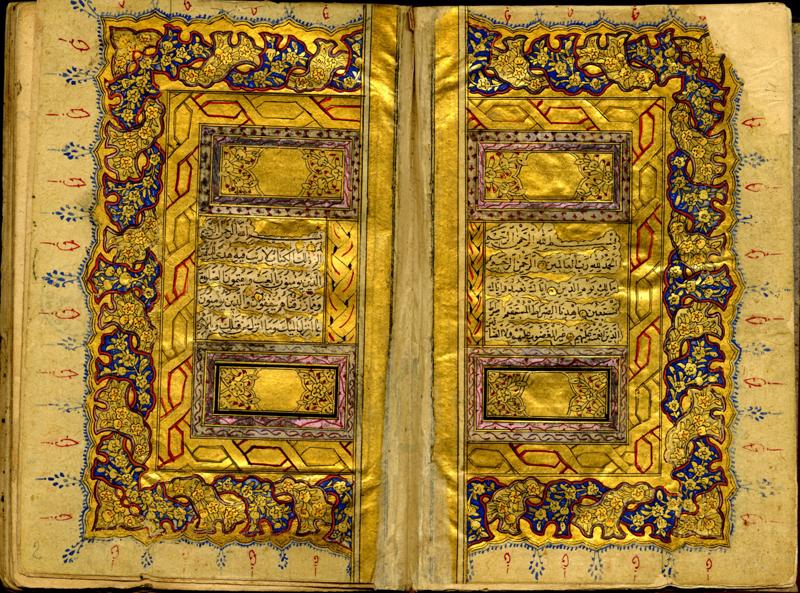 بسم الله الرحمن الرحيم
الحمد لله رب العالمين الرحمن الرحيم
مالك يوم الدين اياك نعبد واياك
نستعين اهدنا الصراط المستقيم صراط
الذين انعمت عليهم غير المغضوب عليهم ولا الضالين
بسم الله الرحمن الرحيم
الم ذلك الكتاب لا ريب فيه هدى للمتقين
الذين يؤمنون بالغيب ويقيمون الصلوة
ومما رزقناهم ينفقون والذين يؤمنون
بما انزل اليك وما انزل من قبلك
2